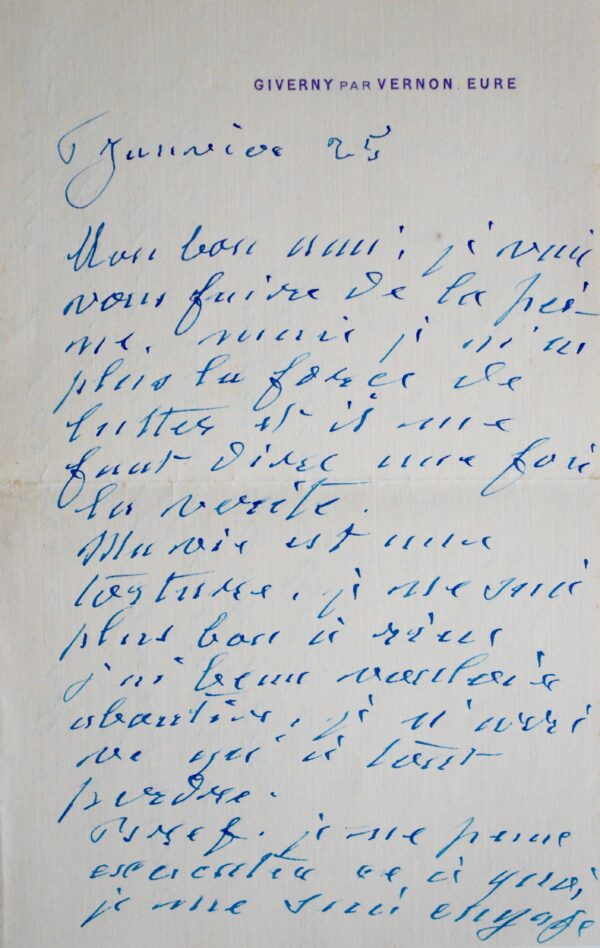 GIVERNY PAR VERNON. EURE
Janvier 25
Mon bon ami, je vais
vous faire de la pei-
ne, mais je n'ai
plus la force de
lutter et il me
faut dire une fois
la verité.
Ma vie est une
torture, je ne suis
plus bon à rien
j'ai beau vouloir
aboutir, je n'arri
ve qu'à tout
perdre.
Bref, je ne peux
executer ce à quoi
je me suis engagé